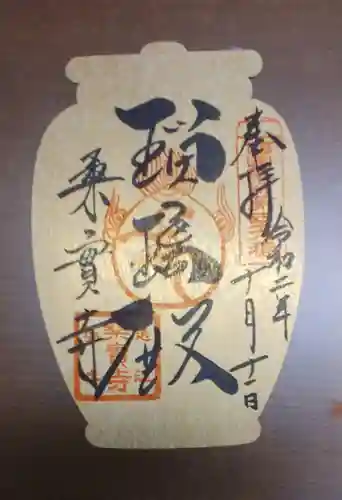 奉拝
令和二年
十月十一日
瑠璃殿
乗寳寺